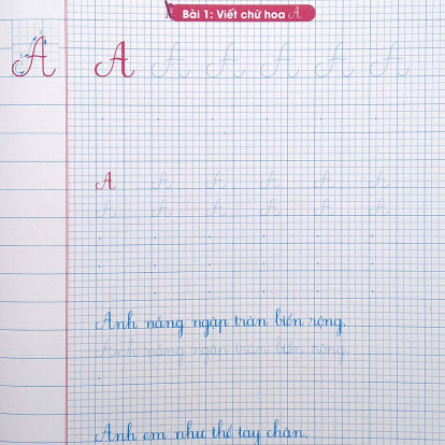 Bài 1: Viết chữ hoa A
A A A A A A A
A A A A A A A
A A A A A A
Ánh nắng ngập tràn biển rộng.
Ánh nắng ngập tràn biển rộng.
Anh em như thể tay chân.